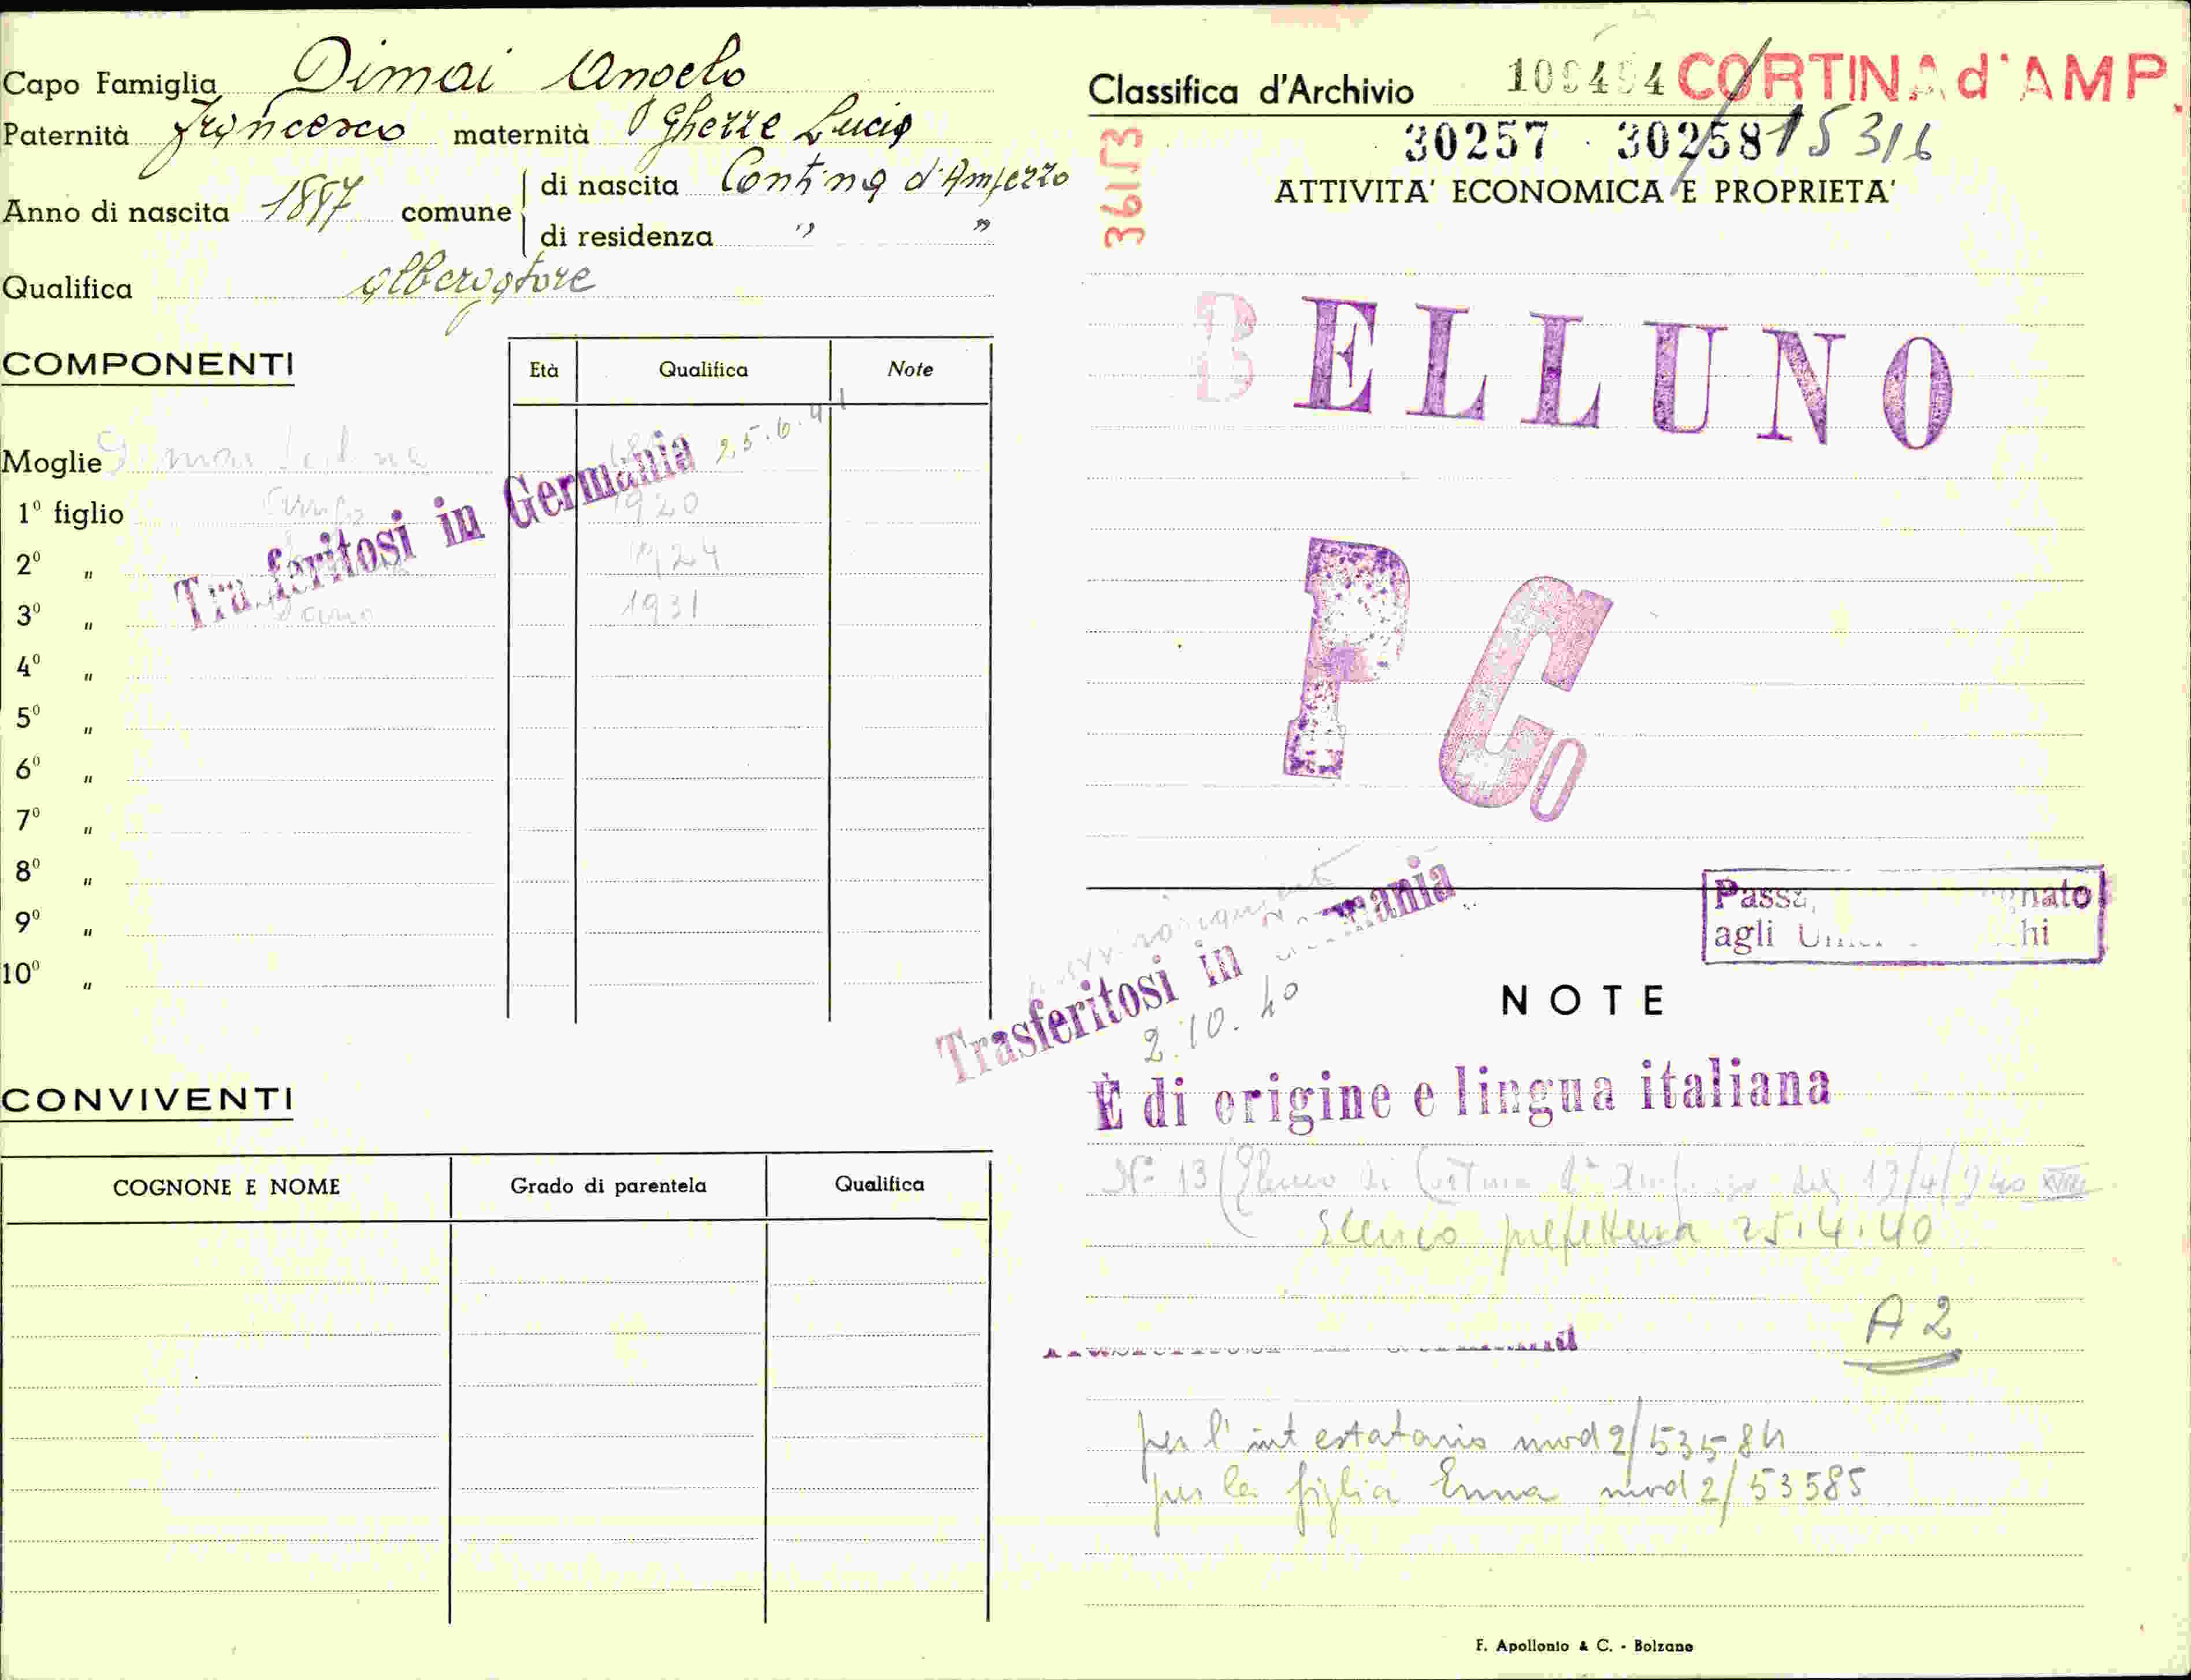 Capo Famiglia Dimai Angelo
Paternità Francesco maternità Ghezze Lucia
Anno di nascita 1897 comune di nascita Cortina d'Ampezzo
di residenza " "
Qualifica albergatore
COMPONENTI
Età Qualifica Note
Moglie Dimai
25.6.41
Trasferitosi in Germania
1º figlio 1920
2º " 1924
3º " 1931
4º "
5º "
6º "
7º "
8º "
9º "
10º "
CONVIVENTI
COGNONE E NOME Grado di parentela Qualifica
Classifica d'Archivio CORTINA d'AMP.
30257 30258 15316
36153
ATTIVITA' ECONOMICA E PROPRIETA'
BELLUNO
P C O
Trasferitosi in Germania
2.10.40
agli
NOTE
È di origine e lingua italiana
Nº 13 (Elenco di Cortina d'Ampezzo del 1940 XVIII
Elenco prefettura 25.4.40
A2
per l'intestatario mod 2/53584
per la figlia Emma mod 2/53585
F. Apollonio & C. - Bolzano